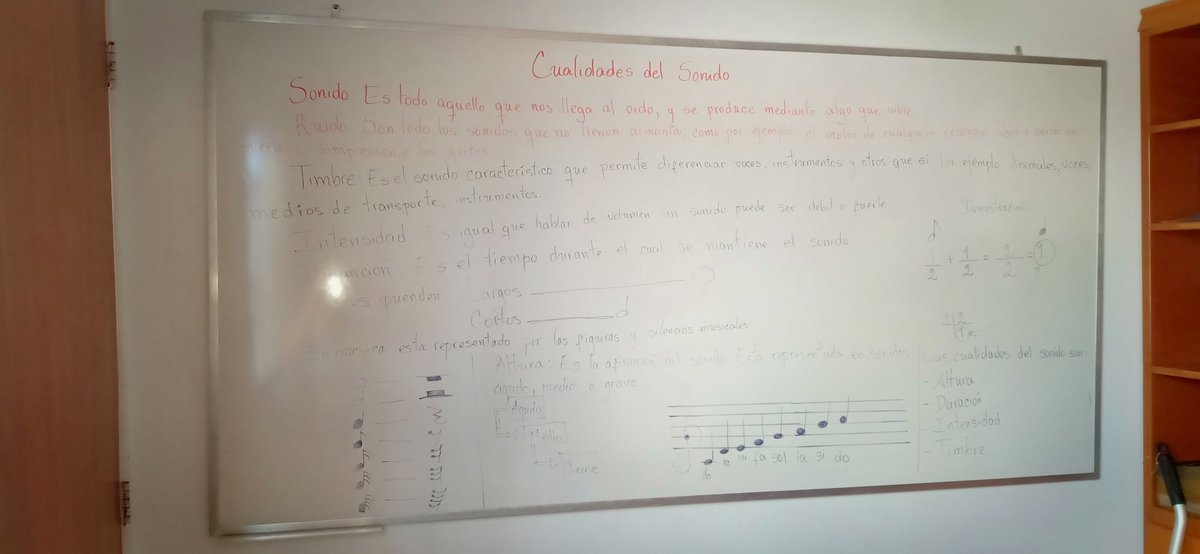 Cualidades del Sonido
Sonido: Es todo aquello que nos llega al oido, y se produce mediante algo que vibre
Ruido: Son todo los sonidos que no tienen armonia, como por ejemplo el motor de cualquier vehiculo,
simplemente los gritos
Timbre: Es el sonido caracteristico que permite diferenciar voces, instrumentos y otros que si. Por ejemplo: Animales, voces,
medios de transporte, instrumentos.
Intensidad: Es igual que hablar de volumen un sonido puede ser debil o fuerte
Es el tiempo durante el cual se mantiene el sonido
Largos
Cortos
esta representado por las figuras y silencios musicales
Altura: Es la afinación del sonido. Esta representada en sonidos
agudo, medio o grave
Agudo
Medio
Grave
do re mi fa sol la si do
Demostración
1/2 + 1/2 = 2/2 = 1
Las cualidades del sonido son
- Altura
- Duración
- Intensidad
- Timbre